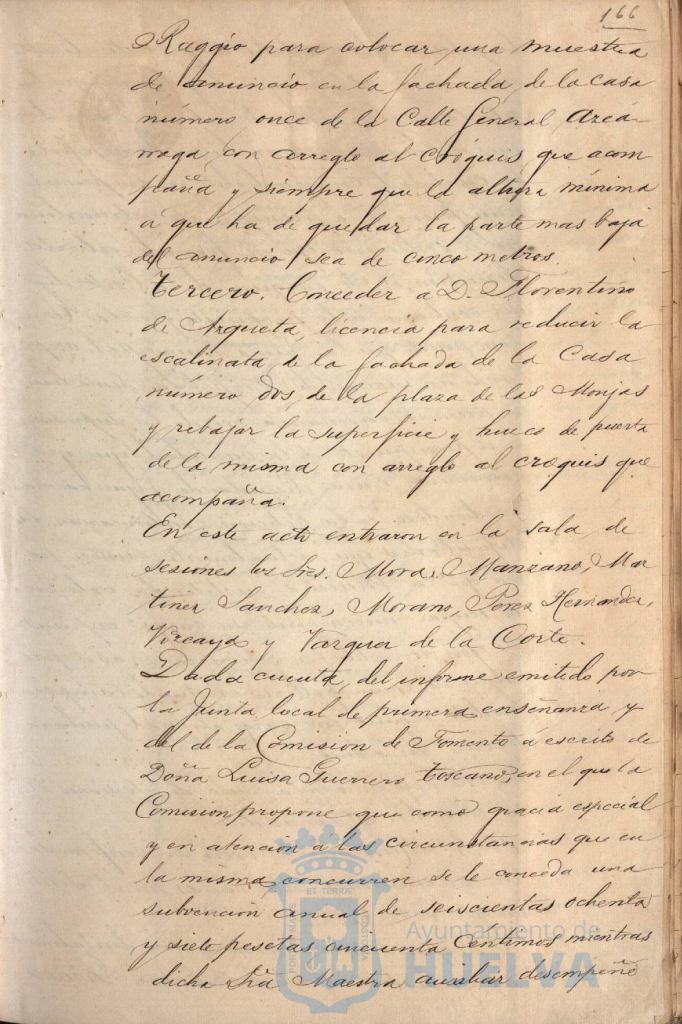 166
Raggio para colocar una muestra
de anuncio en la fachada de la casa
número once de la Calle General Azcá-
rraga, con arreglo al cróquis que acom-
paña y siempre que la altura mínima
á que ha de quedar la parte mas baja
del anuncio sea de cinco metros.
Tercero. Conceder á D. Florentino
de Arqueta, licencia para reducir la
escalinata de la fachada de la Casa
número dos, de la plaza de las Monjas
y rebajar la superficie y hueco de puerta
de la misma con arreglo al croquis que
acompaña.
En este acto entraron en la sala de
sesiones los Sres. Mora, Manzano, Mar
tinez Sanchez, Morano, Perez Hernandez,
Vizcaya y Vazquez de la Corte.
Dada cuenta del informe emitido por
la Junta local de primera enseñanza y
del de la Comision de Fomento á escrito de
Doña Luisa Guerrero Toscano, en el que la
Comision propone que como gracia especial
y en atencion a las circunstancias que en
la misma concurren se le conceda una
subvencion anual de seiscientas ochenta
y siete pesetas cincuenta Centimos mientras
dicha Sra Maestra auxiliar desempeñe
Ayuntamiento de
HUELVA